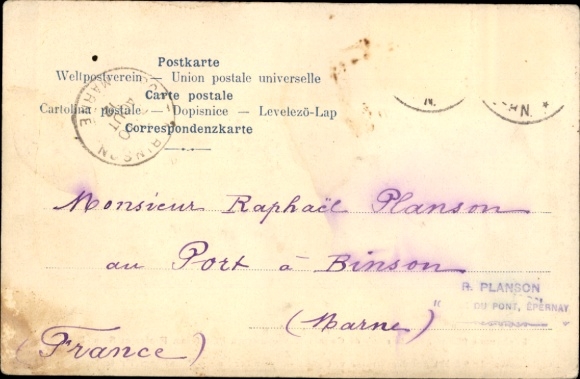 Postkarte
Weltpostverein — Union postale universelle
Carte postale
Cartolina postale — Dopisnice — Levelezö-Lap
Correspondenzkarte
BINSON
MARNE
AOUT
N.
Monsieur Raphaël Planson
au Port à Binson
(Marne)
(France)
R. PLANSON
DU PONT, ÉPERNAY